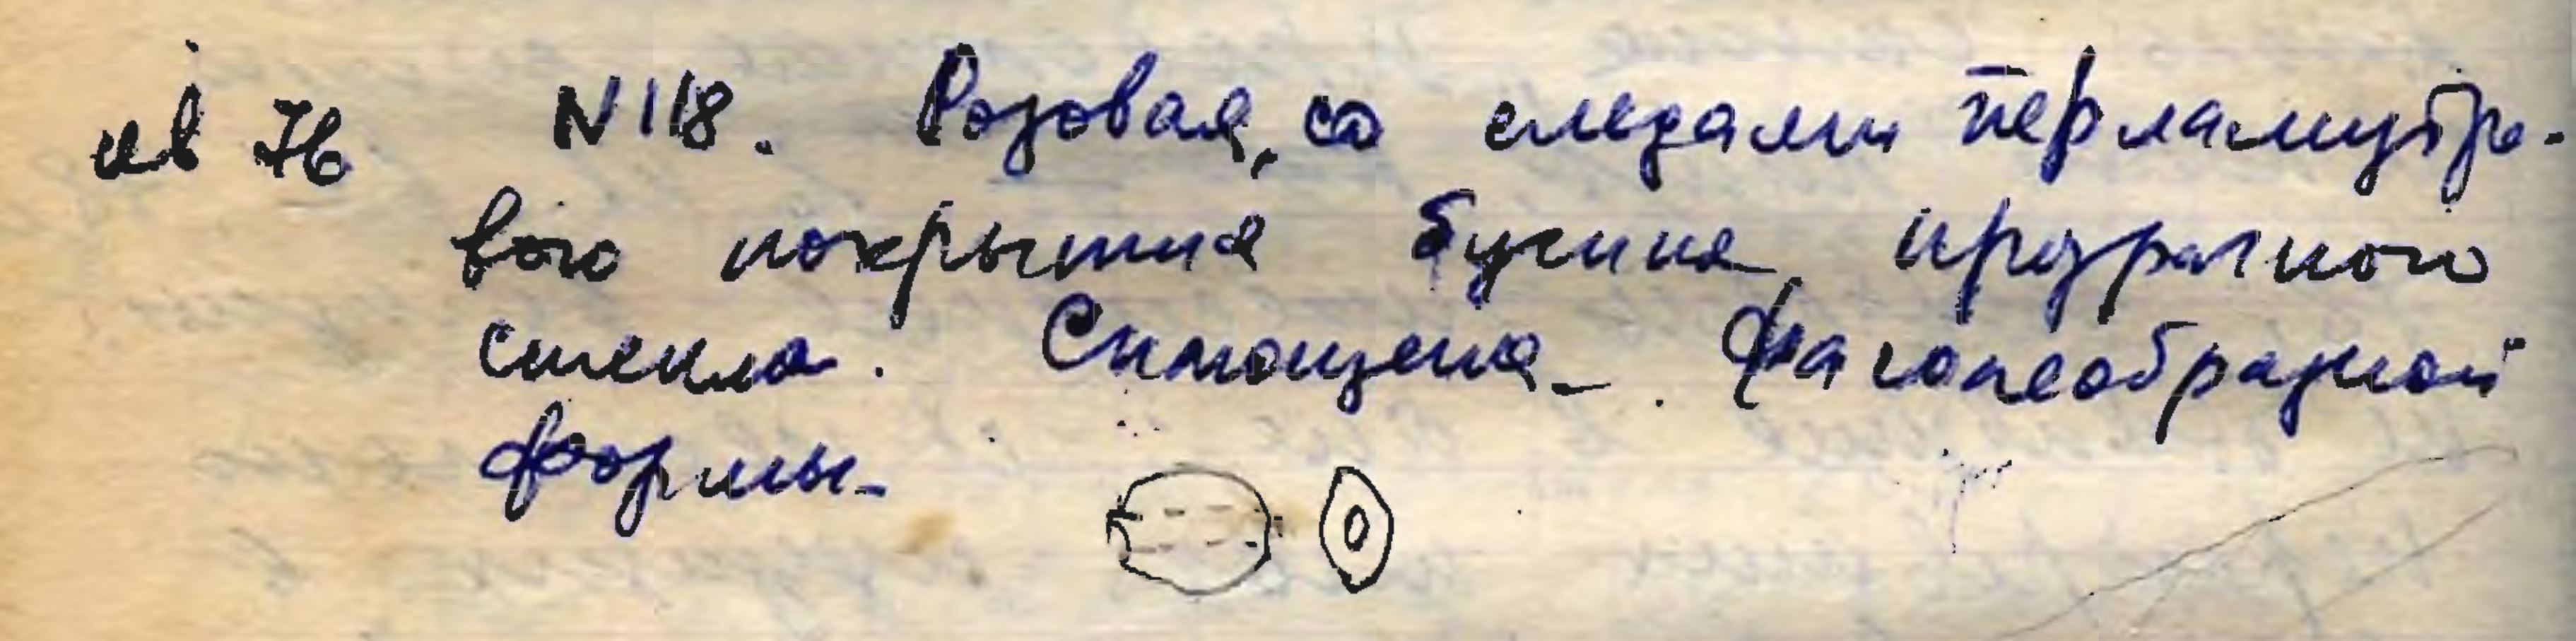 кв 76 N118. Розовая, со следами перламутро-
вого покрытия бусина, прозрачного
стекла. Сплющена. Фасолеобразной
формы.